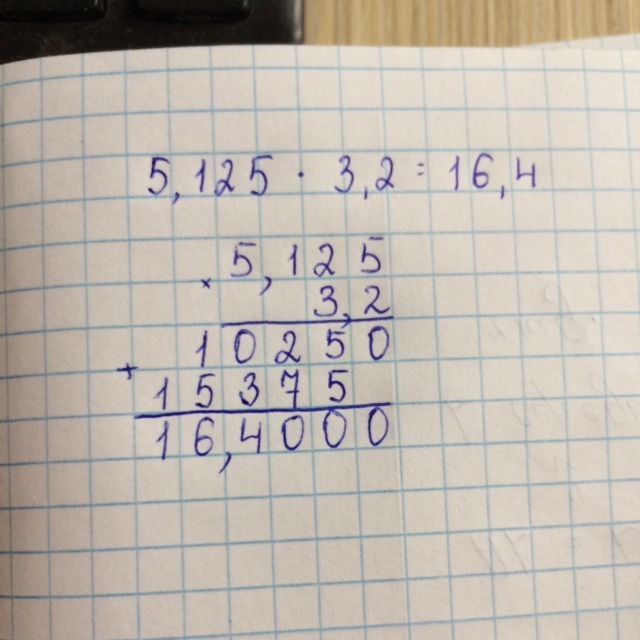 5,125 · 3,2 = 16,4
× 5,125
3,2
10250
+
15375
16,4000